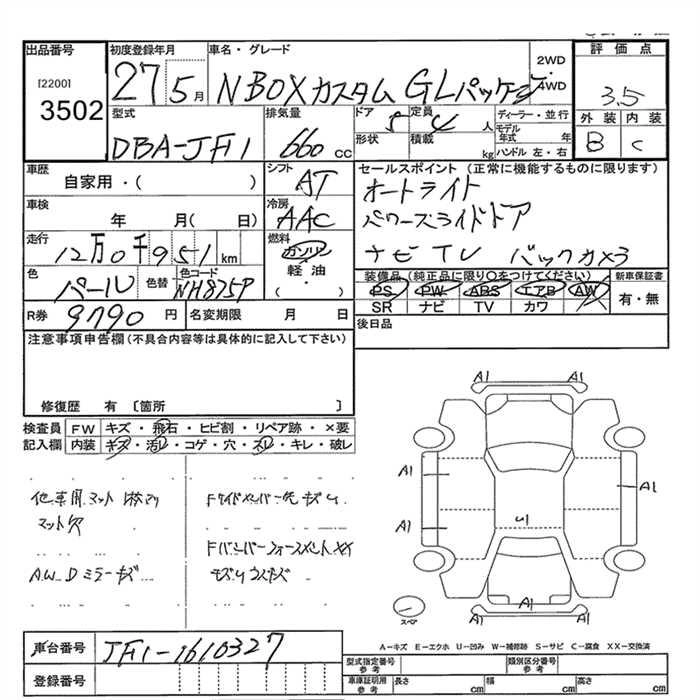 出品番号
[2200]
3502
初度登録年月
27 5月
車名・グレード
NBOXカスタム GLパッケージ
2WD
4WD
評価点
3.5
外装 内装
B C
型式
DBA-JF1
排気量
660 cc
ドア 5
定員 4 人
形状
積載 kg
ディーラー・並行
モデル年式 年
ハンドル 左・右
車歴
自家用・( )
シフト
AT
セールスポイント (正常に機能するものに限ります)
オートライト
パワースライドドア
ナビ TV バックカメラ
車検
年 月( 日)
冷房
AAC
走行
12万0千951 km
燃料
ガソリン
軽油
( ・ )
色
パール
色替
色コード
NH875P
装備品(純正品に限り○をつけてください)
PS PW ABS エアB AW
SR ナビ TV カワ
新車保証書
有・無
R券 9790 円
名変期限 月 日
後日品
注意事項申告欄(不具合内容等は具体的に記入して下さい)
修復歴 有 〔箇所 〕
検査員
記入欄
FW キズ・飛石・ヒビ割・リペア跡・×要
内装 キズ・汚レ・コゲ・穴・スレ・キレ・破レ
他車用マット
マット欠
AW Dミラーキズ
A1 A1
A1
A1
A1
U1
A1 A1
スペア
A-キズ E-エクボ U-凹み W-補修跡 S-サビ C-腐食 XX-交換済
車台番号 JF1-1610327
登録番号
型式指定番号
参考
類別区分番号
参考
車庫証明用
参考
長さ cm 幅 cm 高さ cm